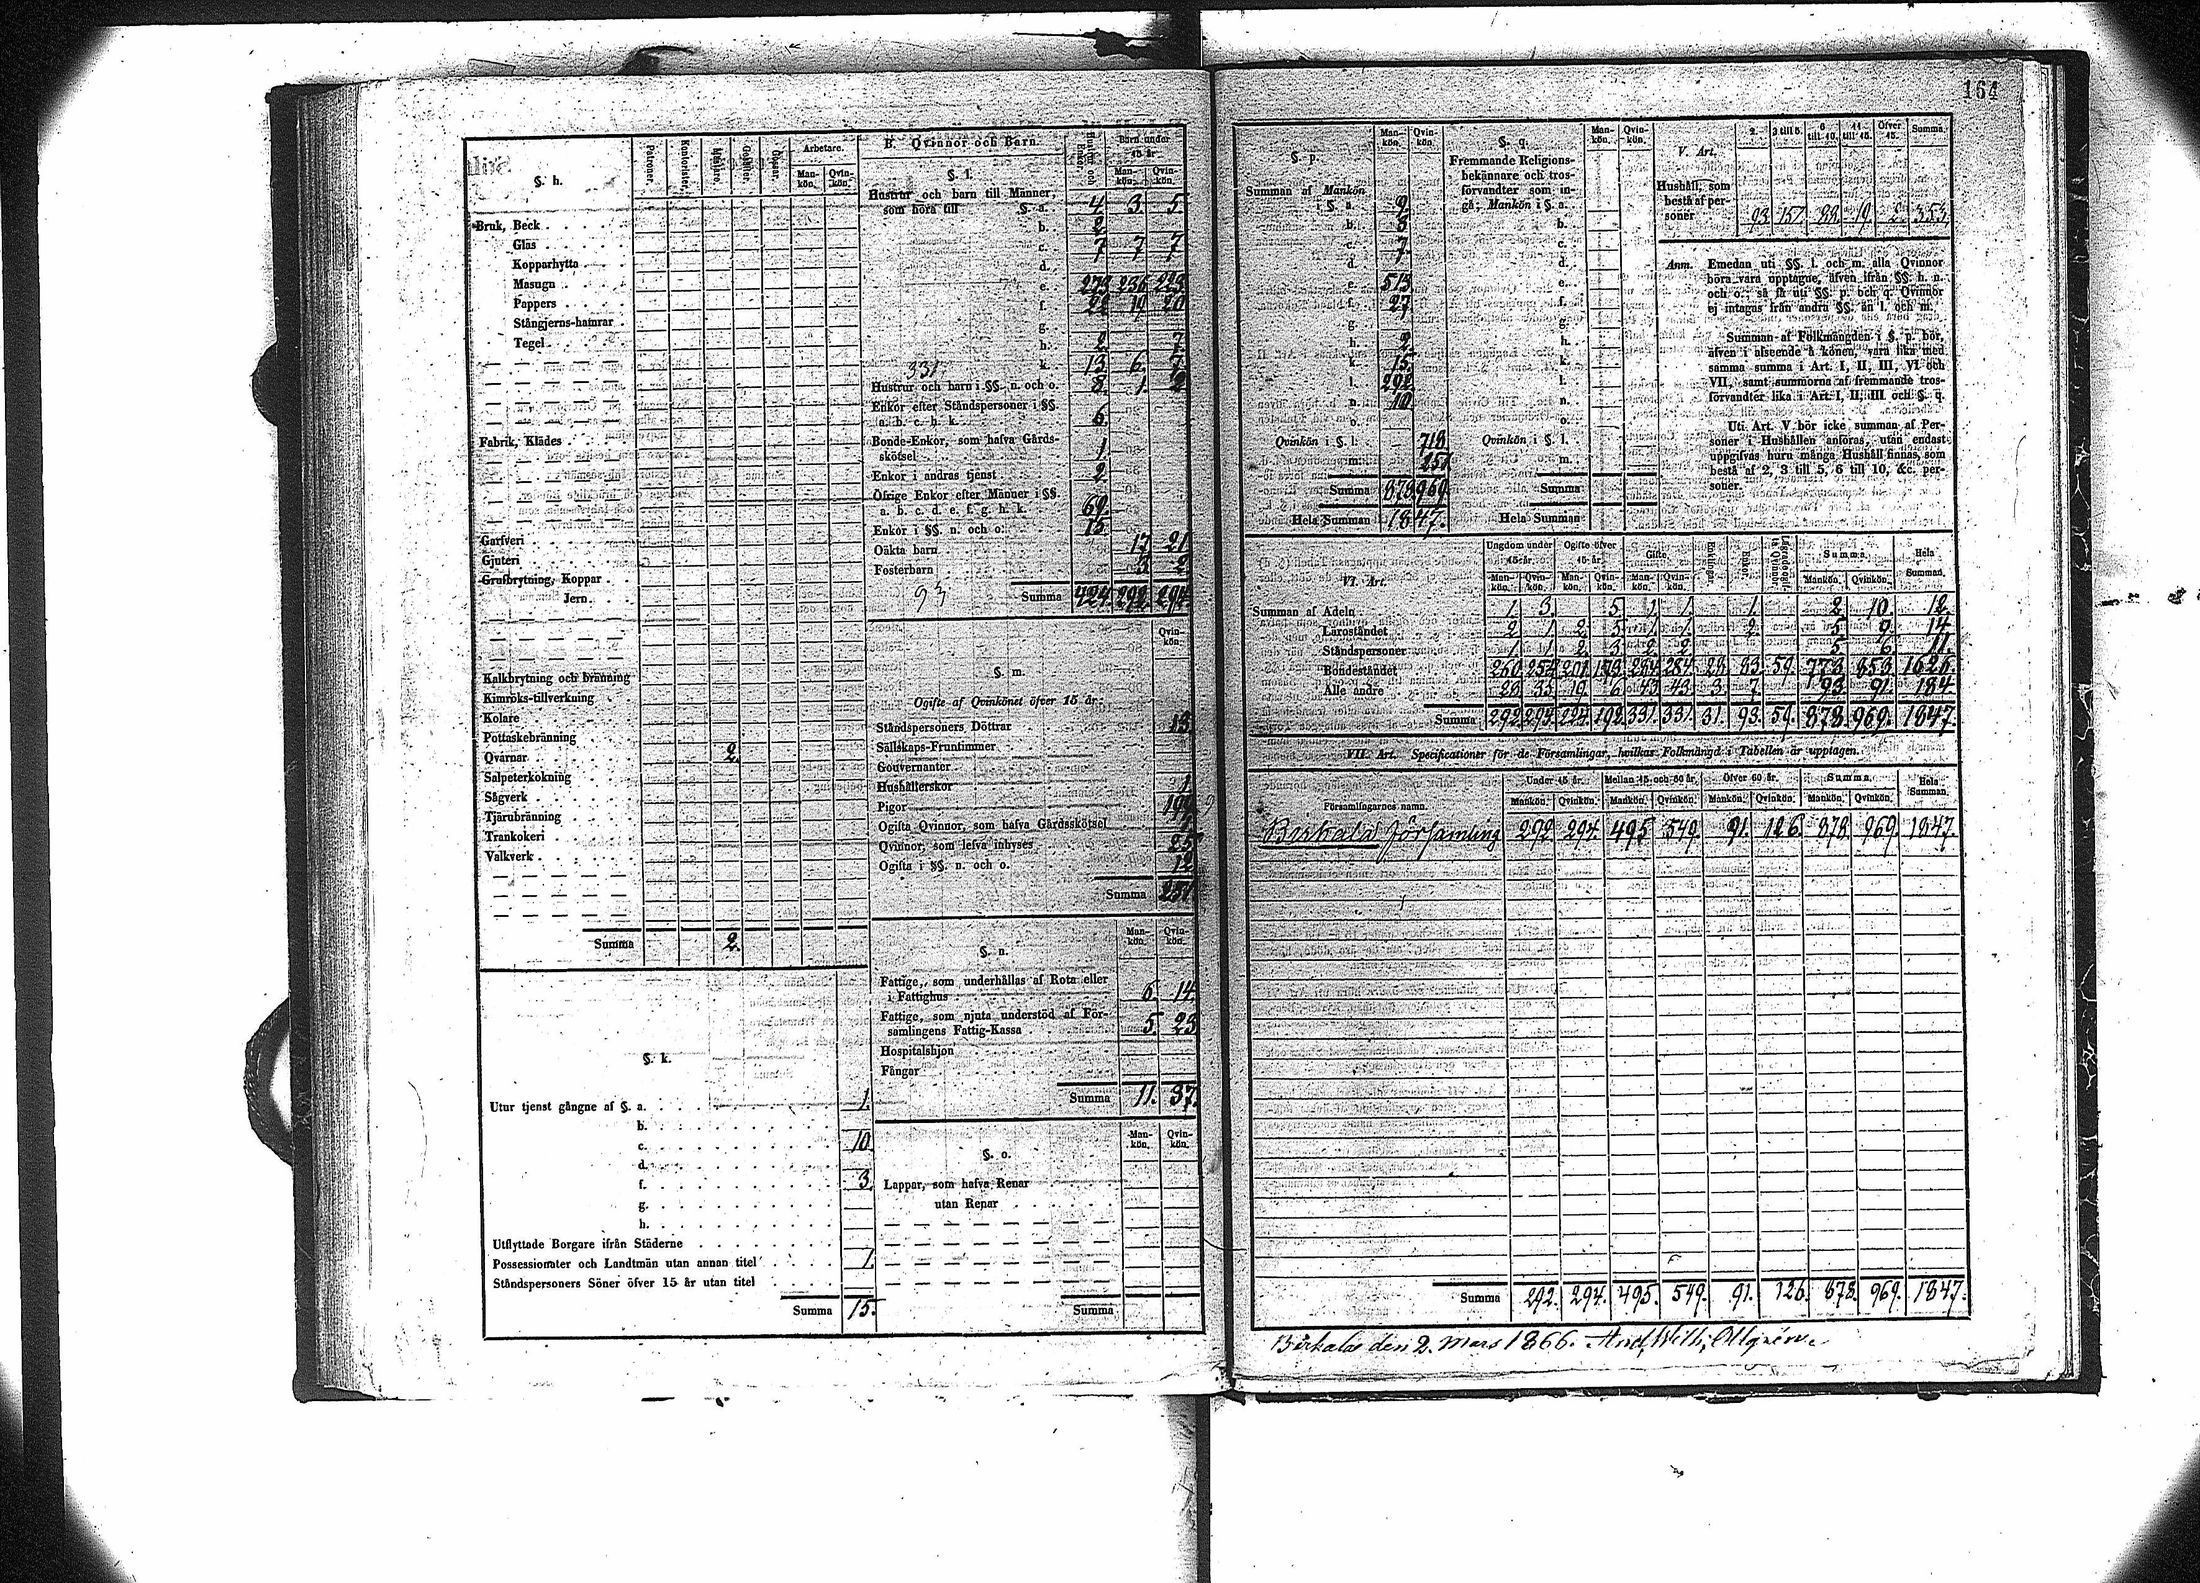 164
§. h.
Patroner.
Kontorister.
Mästare.
Gesäller.
Arbetare.
Man-
kön.
Qvin-
kön.
Bruk, Beck
Glas
Kopparhytta
Masugn
Pappers
Stångjerns-hamrar
Tegel
Fabrik, Klädes
Garfveri
Gjuteri
Grufbrytning, Koppar
Jern
Kalkbrytning och bränning
Kimröks-tillverkning
Kolare
Pottaskebränning
Qvarnar 2.
Salpeterkokning
Sågverk
Tjärubränning
Trankokeri
Valkverk
Summa 2.
§. k.
Utur tjenst gångne af §. a. 1.
b.
c. 10
d.
f. 3.
g.
h.
Utflyttade Borgare ifrån Städerne
Possessionater och Landtmän utan annan titel 1.
Ståndspersoners Söner öfver 15 år utan titel
Summa 15.
B. Qvinnor och Barn.
Barn under
15 år.
Man-
kön.
Qvin-
kön.
§. l.
Hustrur och barn till Männer,
som höra till §. a. 4. 3. 5.
b. 2
c. 7 7 7
d.
e. 273 236 223
f. 22 19 20
g.
h. 2
331. k. 13. 6.
Hustrur och barn i §§. n. och o. 8. 1. 2
Enkor efter Ståndspersoner i §§.
a. b. c. h. k. 6.
Bonde-Enkor, som hafva Gårds-
skötsel 1
Enkor i andras tjenst 2
Öfrige Enkor efter Männer i §§.
a. b. c. d. e. f. g. h. k. 69.
Enkor i §§. n. och o. 15.
Oäkta barn 17 21
Fosterbarn 3. 2
93 Summa 424 292 294
Qvin-
kön.
§. m.
Ogifte af Qvinkönet öfver 15 år.
Ståndspersoners Döttrar 13.
Sällskaps-Fruntimmer
Gouvernanter
Hushållerskor 1
Pigor
Ogifta Qvinnor, som hafva Gårdsskötsel
Qvinnor, som lefva inhyses 25
Ogifta i §§. n. och o. 12
Summa 251
Man-
kön.
Qvin-
kön.
§. n.
Fattige, som underhållas af Rota eller
i Fattighus 6. 14
Fattige, som njuta understöd af För-
samlingens Fattig-Kassa 5. 23
Hospitalshjon
Fångar
Summa 11. 37.
Man-
kön.
Qvin-
kön.
§. o.
Lappar, som hafva Renar
utan Renar
Summa
§. p.
Man-
kön.
Qvin-
kön.
Summan af Mankön
i §. a. 9.
b. 3
c. 7.
d.
e. 513
f. 27
g.
h. 2
k. 15.
l. 292
n. 10
o.
Qvinkön i §. l. 718
m. 251
Summa 878 969
Hela Summan 1847.
§. q.
Man-
kön.
Qvin-
kön.
Fremmande Religions-
bekännare och tros-
förvandter som in-
gå; Mankön i §. a.
b.
c.
d.
e.
f.
g.
h.
k.
l.
n.
o.
Qvinkön i §. l.
m.
Summa
Hela Summan
V. Art.
2. 3 till 5. 6
till 10. 11
till 15. Öfver
15. Summa.
Hushåll, som
bestå af per-
soner 93 151 88 19 2 353
Anm. Emedan uti §§. l. och m. alla Qvinnor
böra vara upptagne, äfven ifrån §§. h. n.
och o., så få uti §§. p. och q. Qvinnor
ej intagas från andra §§. än l. och m.
Summan af Folkmängden i §. p. bör,
äfven i afseende å könen, vara lika med
samma summa i Art. I, II, III, VI och
VII, samt summorna af fremmande tros-
förvandter lika i Art. I, II, III och §. q.
Uti Art. V bör icke summan af Per-
soner i Hushållen anföras, utan endast
uppgifvas huru många Hushåll finnas, som
bestå af 2, 3 till 5, 6 till 10, &c. per-
soner.
VI. Art.
Ungdom under
15 år.
Ogifte öfver
15 år.
Gifte
Enklingar.
Enkor.
Summa.
Hela
Summan.
Man-
kön. Qvin-
kön. Man-
kön. Qvin-
kön. Man-
kön. Qvin-
kön. Mankön. Qvinkön.
Summan af Adeln 1 3. 5 1 1. 1. 2. 10. 12.
Läroståndet 2 1 2 5 1. 1. 2. 5 9. 14
Ståndspersoner 1 1 2 3 2 2 5 6. 11.
Bondeståndet 260 254 201 173 284 284 28 83. 59. 773 853 1626
Alle andre 28 35 19 6 43 43 3. 7 93 91. 184
Summa 292 294 224 192 331 331. 31. 93. 59. 878. 969. 1847.
VII. Art. Specificationer för de Församlingar, hvilkas Folkmängd i Tabellen är upptagen.
Församlingarnes namn.
Under 15 år. Mellan 15 och 60 år. Öfver 60 år. Summa. Hela
Summan.
Mankön. Qvinkön. Mankön. Qvinkön. Mankön. Qvinkön. Mankön. Qvinkön.
Birkala församling 292 294. 495 549. 91. 126. 878. 969. 1847.
Summa 292. 294. 495. 549. 91. 126 878. 969. 1847.
Birkala den 2. Mars 1866.